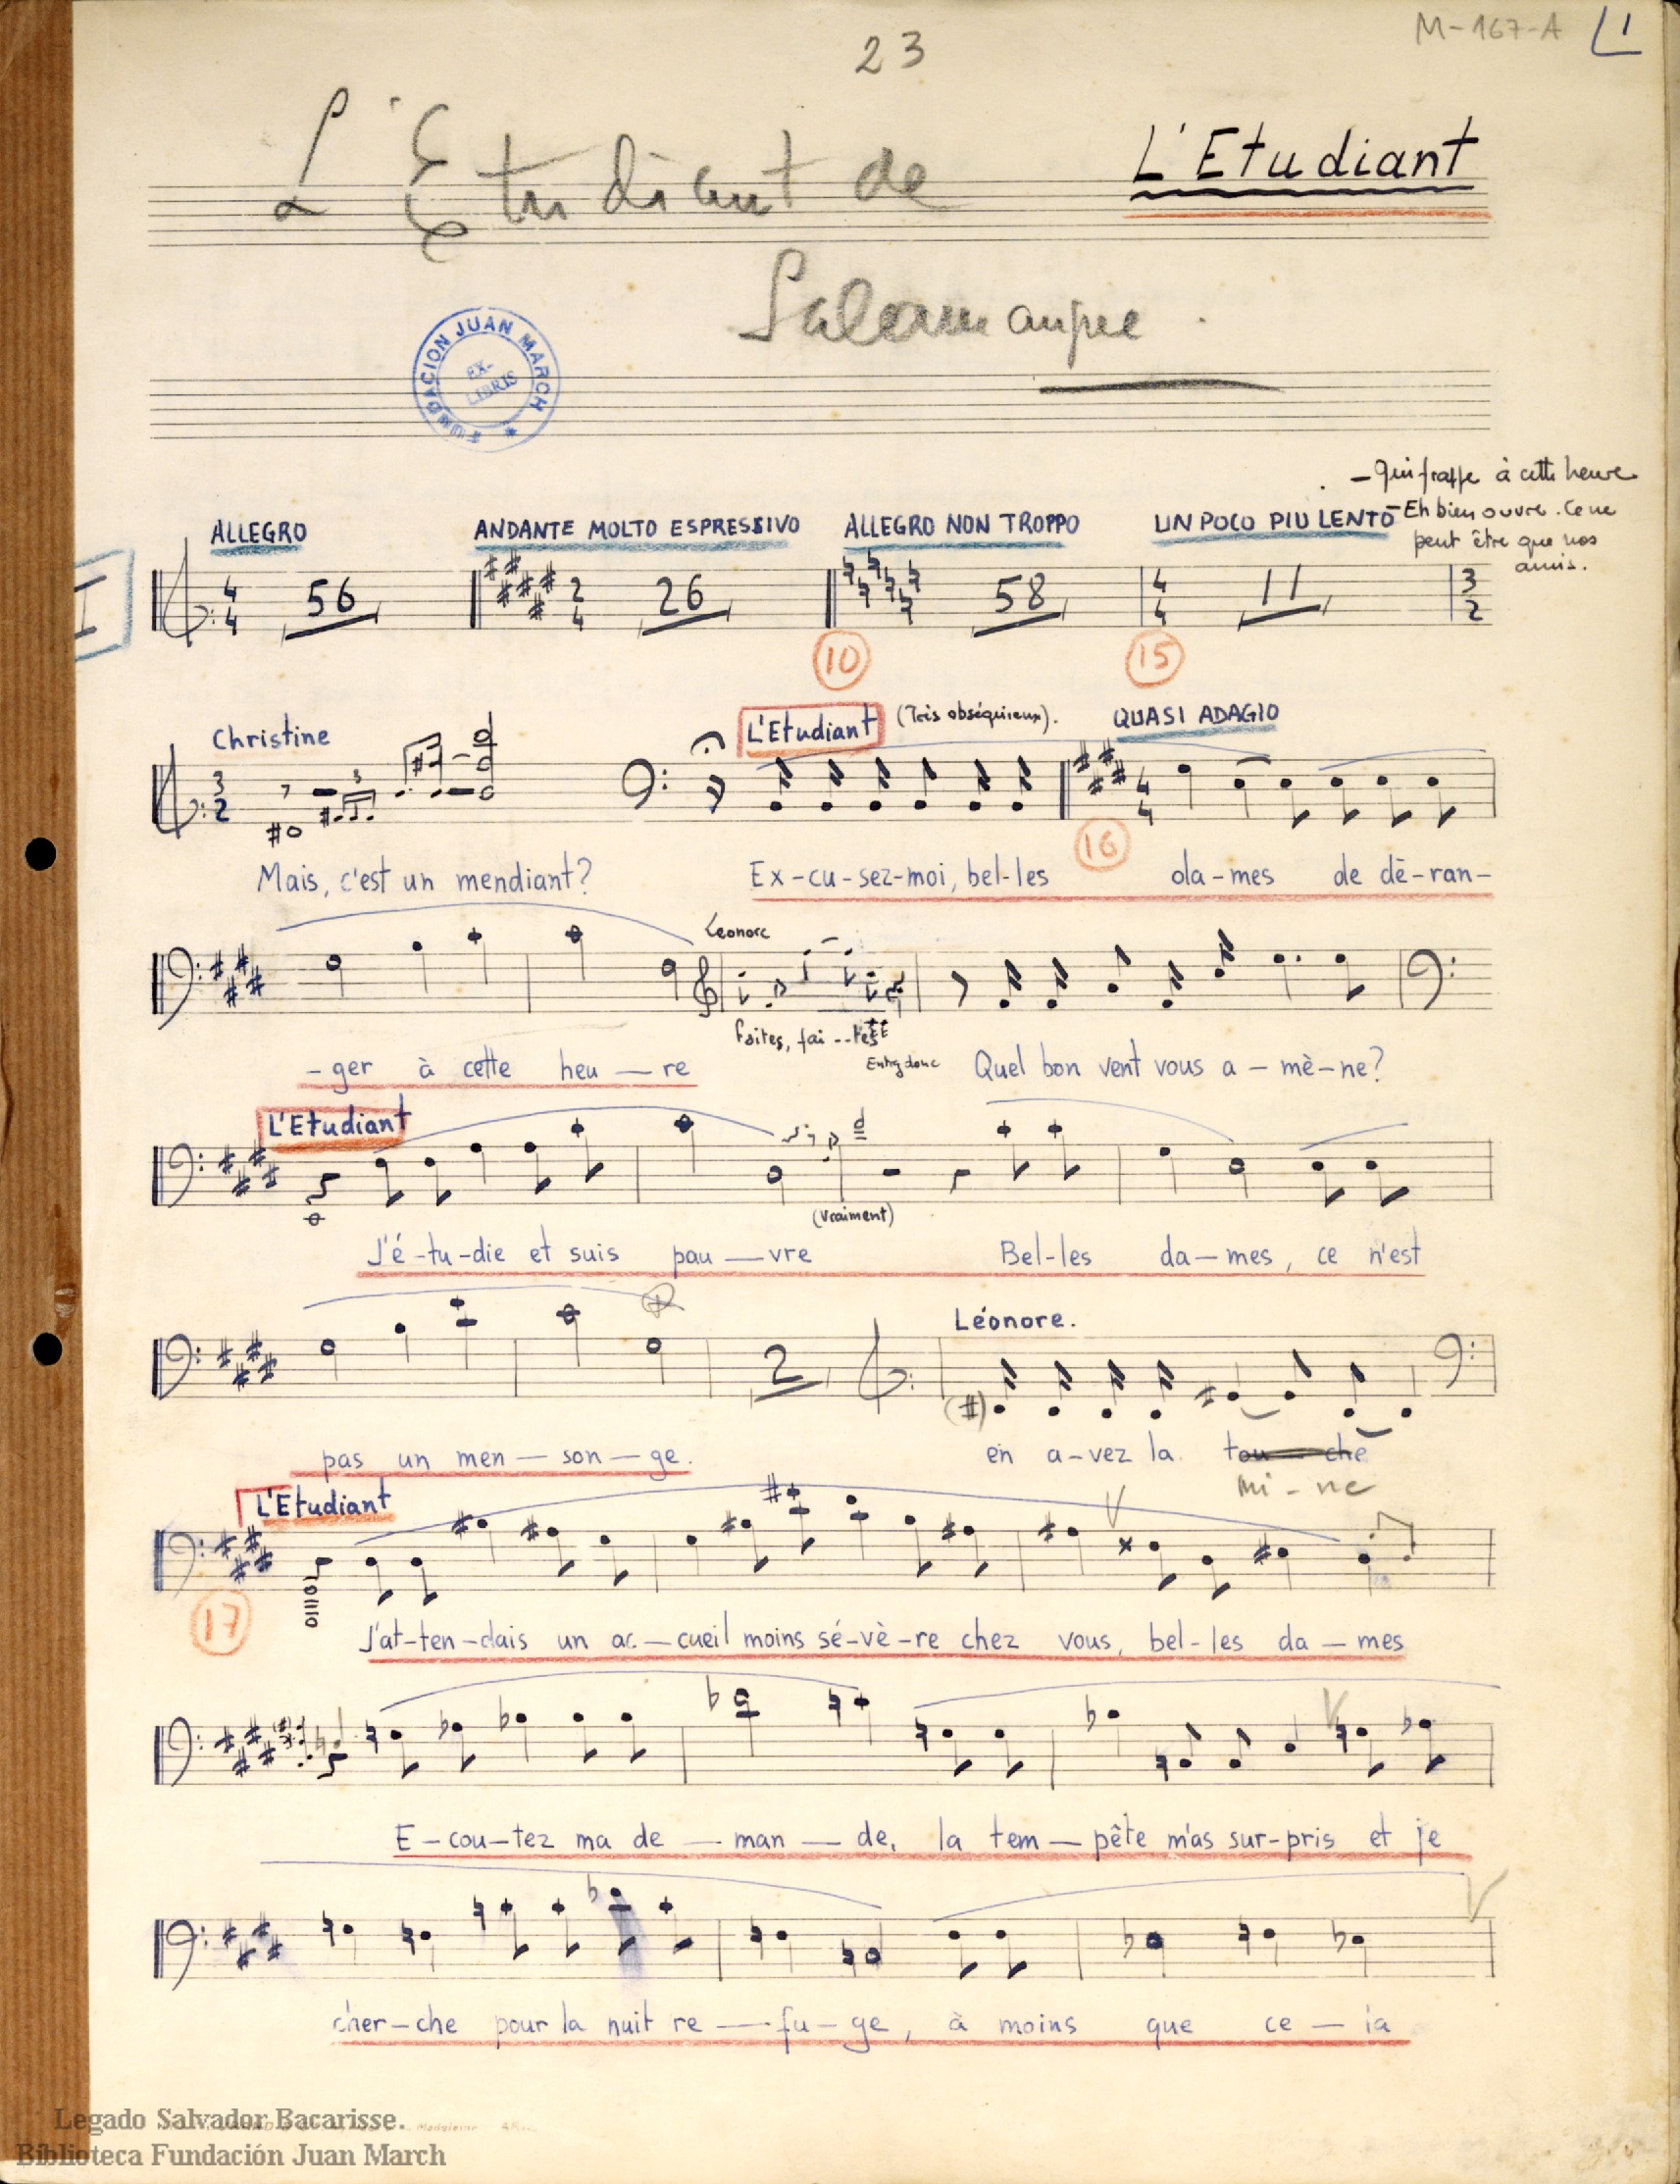 M-167-A 1
23
L'Etudiant de
L'Etudiant
Salamanque.
FUNDACION JUAN MARCH
EX-LIBRIS
- Qui frappe à cette heure
ALLEGRO ANDANTE MOLTO ESPRESSIVO ALLEGRO NON TROPPO UN POCO PIU LENTO - Eh bien ouvre. Ce ne
peut être que nos
amis.
I 4/4 56 2/4 26 58 4/4 11 3/2
10 15
Christine L'Etudiant (Très obséquieux). QUASI ADAGIO
3/2 3 4/4
16
Mais, c'est un mendiant? Ex-cu-sez-moi, bel-les da-mes de dé-ran-
Leonore
Faites, fai--tes
Entrez donc
-ger à cette heu—re Quel bon vent vous a-mè-ne?
L'Etudiant
(Vraiment)
J'é-tu-die et suis pau—vre Bel-les da-mes, ce n'est
Léonore.
2
pas un men—son—ge. en a-vez la tou—che
mi-ne
L'Etudiant
17
J'at-ten-dais un ac-cueil moins sé-vè-re chez vous, bel-les da-mes
E-cou-tez ma de—man—de, la tem-pête m'as sur-pris et je
cher-che pour la nuit re—fu-ge, à moins que ce-la
Legado Salvador Bacarisse.
Biblioteca Fundación Juan March